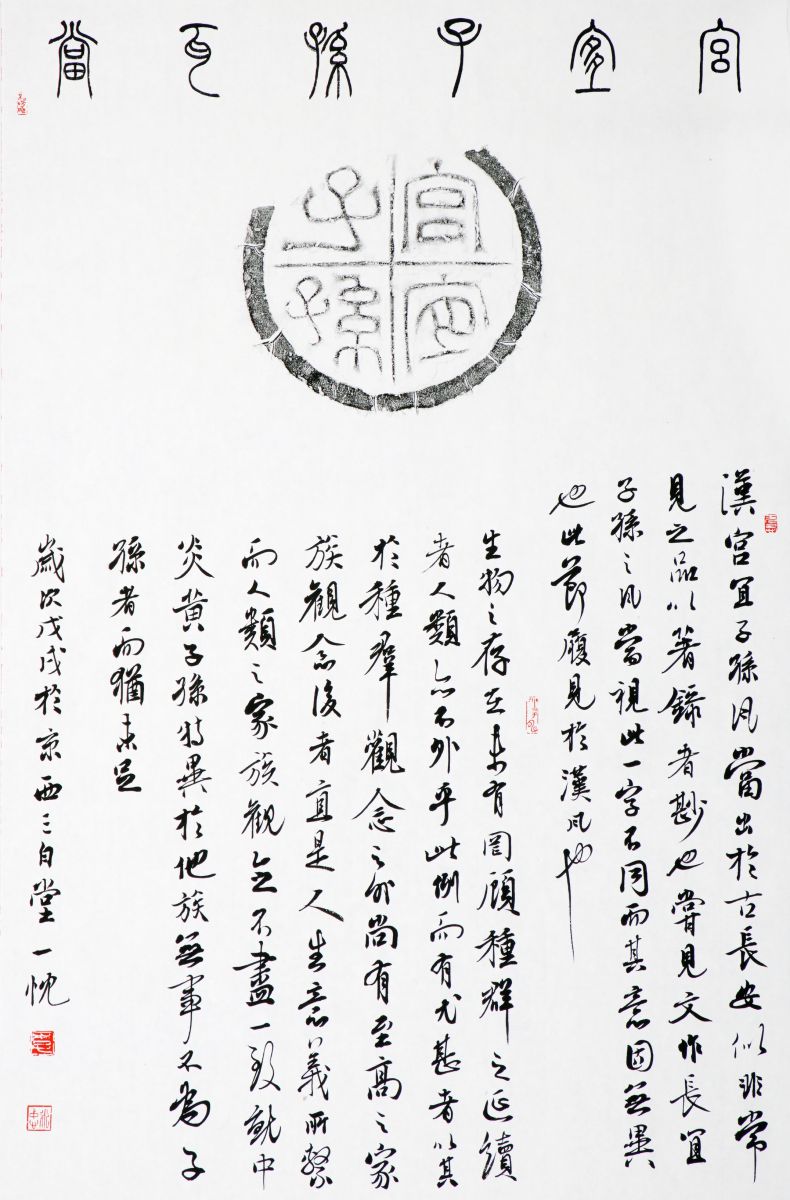 宮宜子孫瓦當
宮宜子孫
漢宮宜子孫瓦當出於古長安似非常
見之品以著錄者尠也嘗見文作長宜
子孫之瓦當視此一字不同而其意固無異
也此節履見於漢瓦也
生物之存在未有罔顧種群之延續
者人類亦不外乎此例而有尤甚者以其
於種群觀念之外尚有至高之家
族觀念後者直是人生意義所繫
而人類之家族觀念不盡一致就中
炎黃子孫特異於他族無事不為子
孫者而猶未足
歲次戊戌於京西三自堂一忱